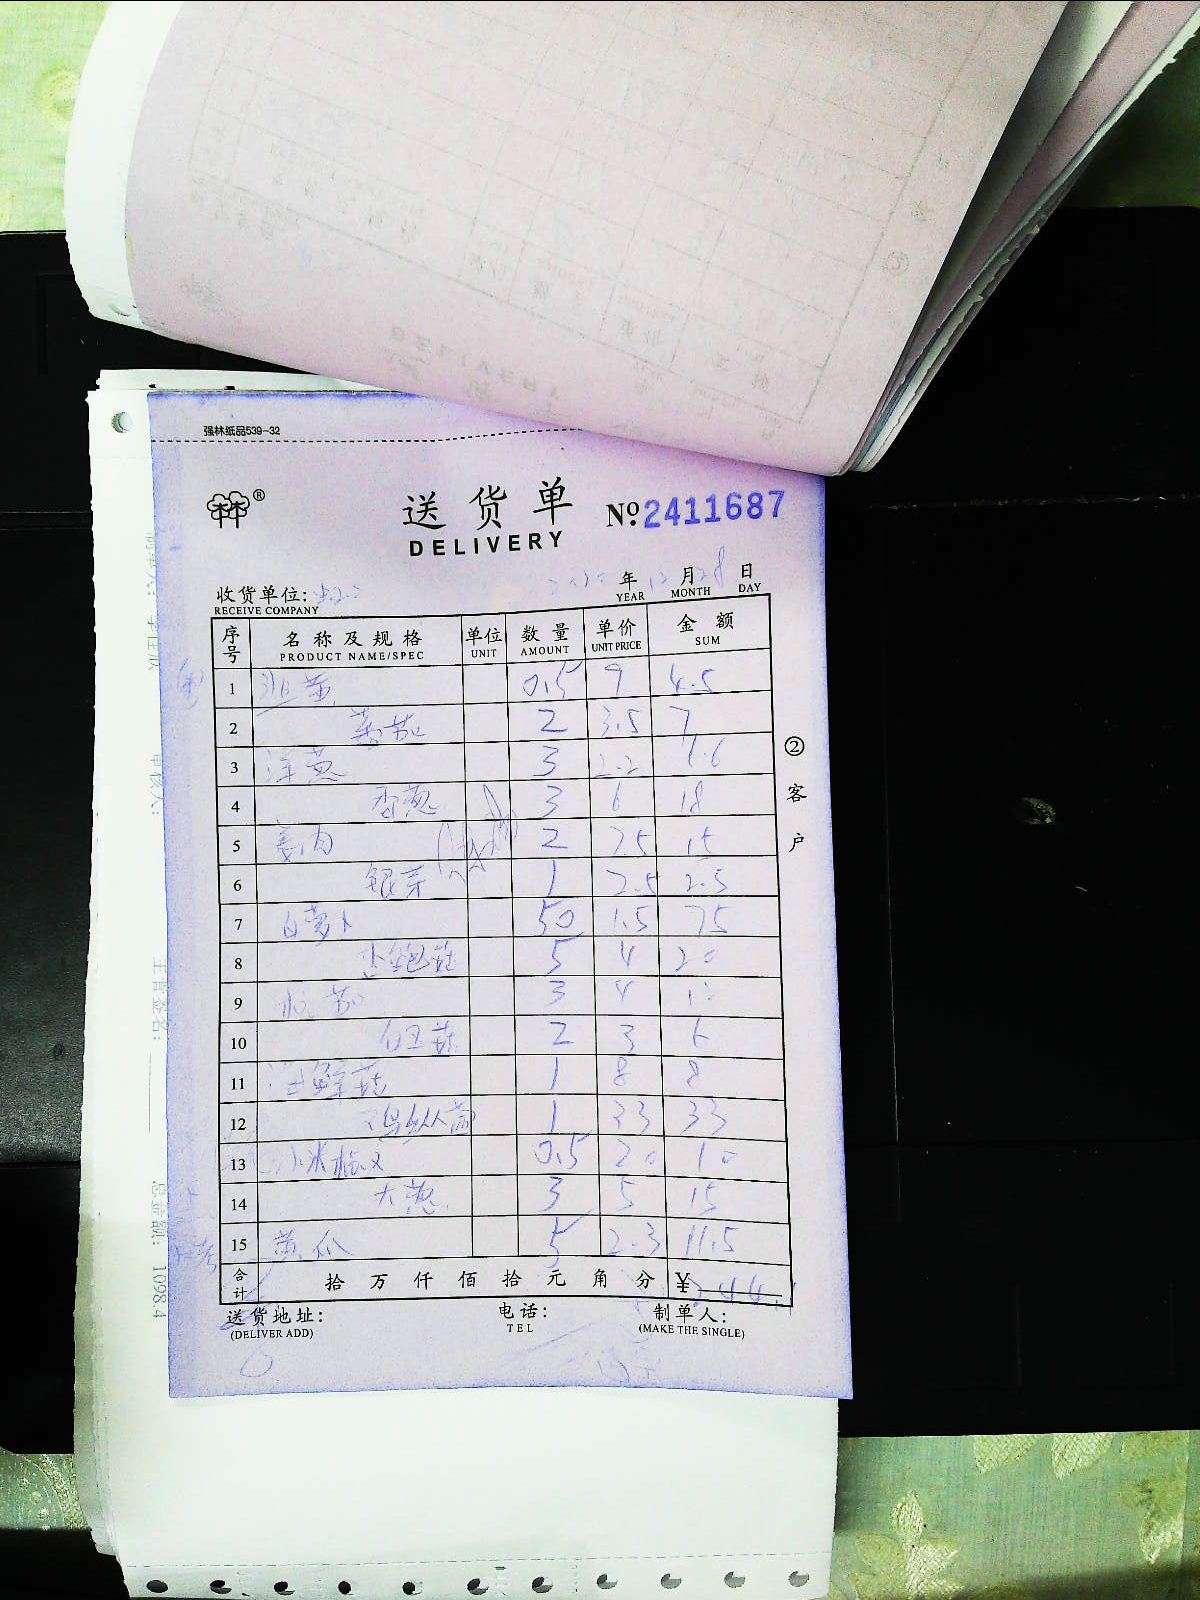 强林纸品539-32
林®
送货单 No.2411687
DELIVERY
收货单位: 年 12 月 28 日
RECEIVE COMPANY YEAR MONTH DAY
序号 名称及规格 单位 数量 单价 金额
PRODUCT NAME/SPEC UNIT AMOUNT UNIT PRICE SUM
1 韭黄 0.5 9 4.5
2 蕃茄 2 3.5 7
3 洋葱 3 2.2 6.6
4 香葱 3 6 18
5 姜肉 2 7.5 15
6 银芽 1 2.5 2.5
7 白萝卜 50 1.5 75
8 杏鲍菇 5 4 20
9 茄 3 4 12
10 白玉菇 2 3 6
11 鲜菇 1 8 8
12 鸡枞菌 1 33 33
13 小米椒 0.5 20 10
14 大葱 3 5 15
15 黄瓜 5 2.3 11.5
合计 拾万仟佰拾元角分 ¥244.1
送货地址: 电话: 制单人:
(DELIVER ADD) TEL (MAKE THE SINGLE)
②客户
审核人:
主管签名:
总金额: 1098.4